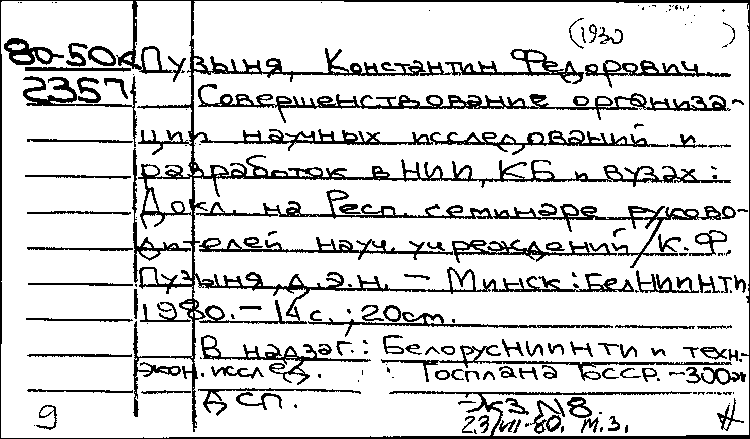 (1930 )
80-50к Пузыня, Константин Федорович
2357 Совершенствование организа-
ции научных исследований и
разработок в НИИ, КБ и вузах:
Докл. на Респ. семинаре руково-
дителей науч. учреждений / К.Ф.
Пузыня, д.э.н. — Минск: БелНИИНТИ,
1980. — 14 с.; 20 см.
В надзаг.: БелорусНИИНТИ и техн.-
экон. исслед. Госплана БССР. — 300 эк
ДСП. Экз N 8.
9 23/VII-80. М.З.